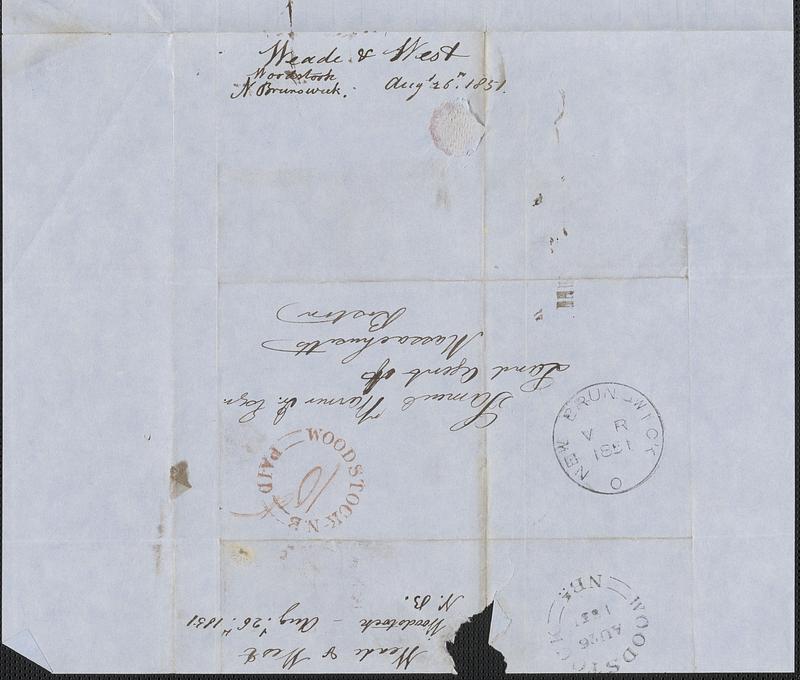 Meade & West
Woodstock
N Brunswick. Augt 26th. 1851.
Samuel Warner Jr. Esqr
Land Agent of
Massachusetts
Boston
NEW BRUNSWICK
V R
1851
O
WOODSTOCK N.B
PAID
10
Meade & West
Woodstock – Augt 26th 1851
N. B.
WOODSTOCK
NB
AU 26
1851